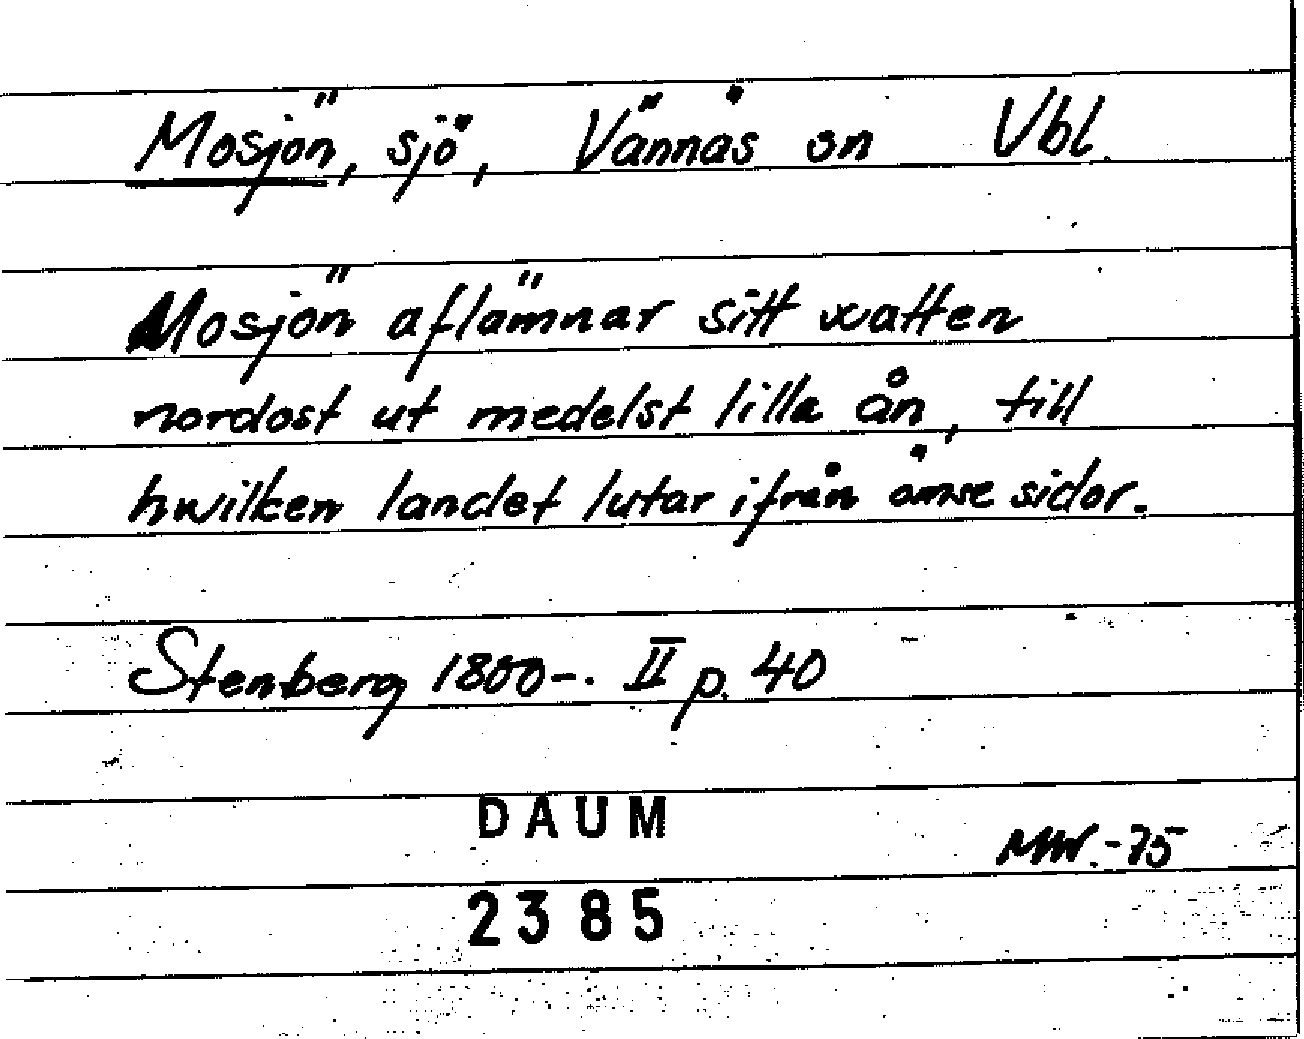 Mosjön, sjö, Vännäs sn Vbl.
Mosjön aflämnar sitt watten
nordost ut medelst lilla ån, till
hwilken landet lutar ifrån ömse sidor.
Stenberg 1800-. II p. 40
DAUM
MW.-75
2385